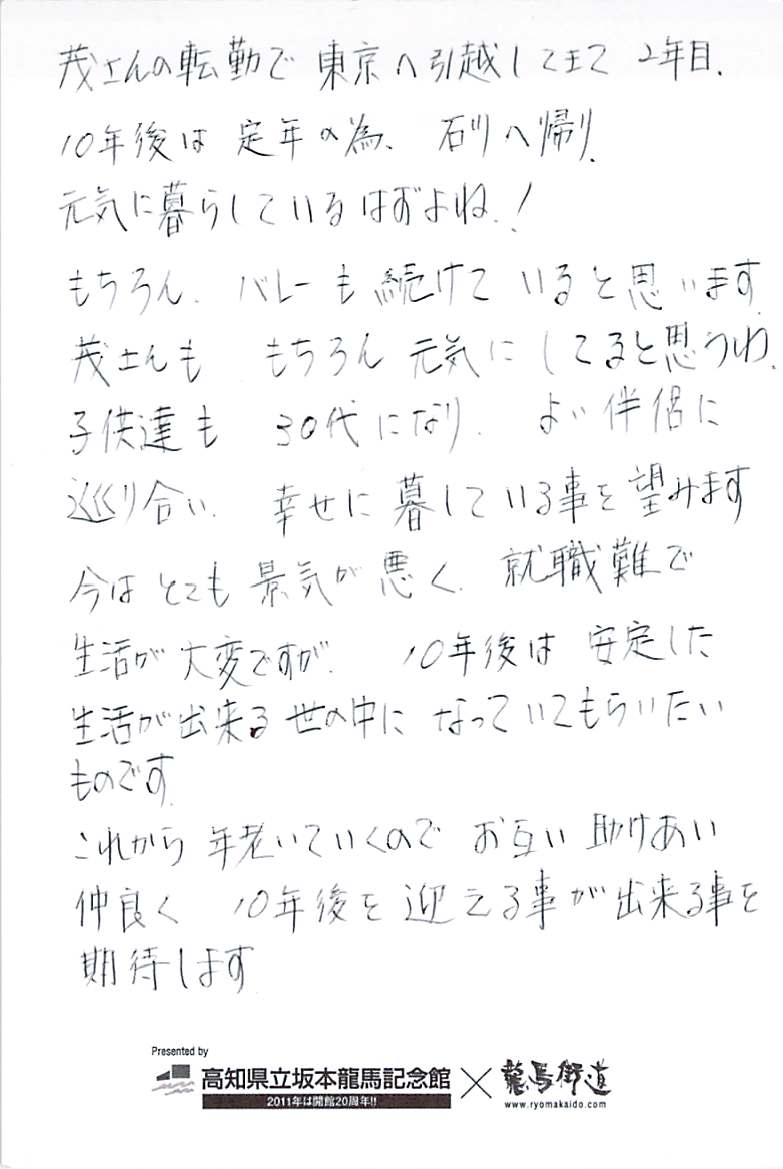 茂さんの転勤で 東京へ引越してきて 2年目.
10年後は 定年の為、石川へ帰り、
元気に暮らしているはずよね.!
もちろん、バレーも続けて いると思います.
茂さんも もちろん 元気に してると思うわ.
子供達も 30代になり、よい伴侶に
巡り合い、幸せに暮している事を望みます
今は とても 景気が 悪く、就職難で
生活が 大変ですが、10年後は 安定した
生活が出来る 世の中に なっていてもらいたい
ものです.
これから 年老いていくので お互い 助けあい
仲良く 10年後を 迎える事が出来る事を
期待します
Presented by
高知県立坂本龍馬記念館 × 龍馬街道
2011年は開館20周年!! www.ryomakaido.com